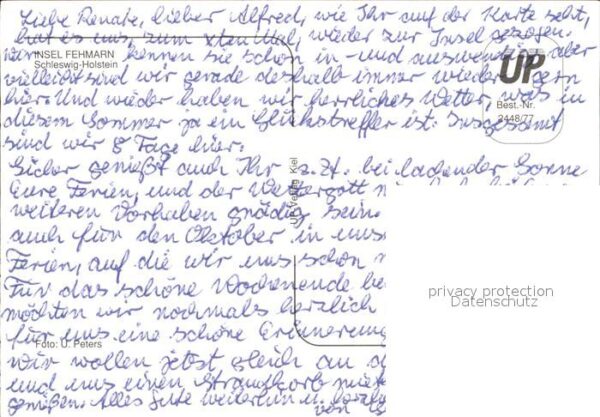 Liebe Renate, lieber Alfred, wie Ihr auf der Karte seht,
hat es uns zum xten Mal, wieder zur Insel gezogen.
INSEL FEHMARN
Schleswig-Holstein
Wir kennen sie schon in- und auswendig aber
vielleicht sind wir gerade deshalb immer wieder gern
hier. Und wieder haben wir herrliches Wetter, was in
diesem Sommer ja ein Glückstreffer ist. Insgesamt
sind wir 8 Tage hier.
UP
Best.-Nr.
2448/77
Sicher genießt auch Ihr z.Zt. bei ladender Sonne
Eure Ferien, und der Wettergott
weiteren Vorhaben gnädig sein.
auch für den Oktober in uns
Ferien, auf die wir uns schon
Für das schöne Wochenende be
möchten wir nochmals herzlich
für uns eine schöne Erinnerung
Foto: U. Peters
Wir wollen jetzt gleich an d
und uns einen Strandkorb miet
genießen. Alles Gute weiterhin u. herzl
von
Kiel
privacy protection
Datenschutz